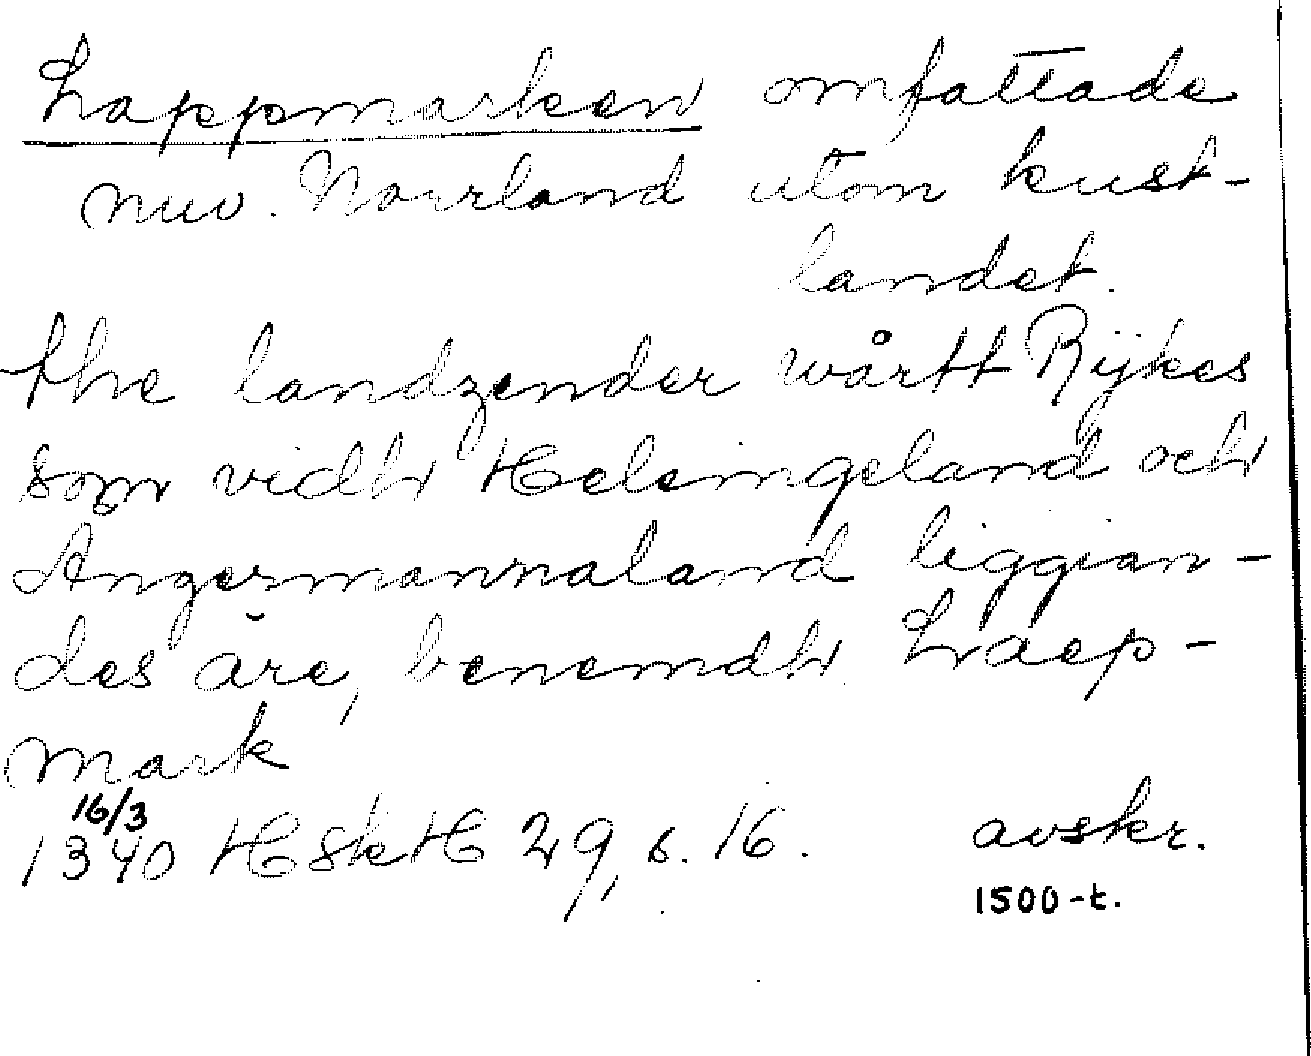 Lappmarken omfattade
nuv. Norrland utom kust-
landet.
the landzender wårtt Rijkes
som vidh Helsingeland och
Angermannaland liggian-
des äre, benemdh Laep-
mark
16/3
1340 HSkH 29, s. 16. avskr.
1500-t.